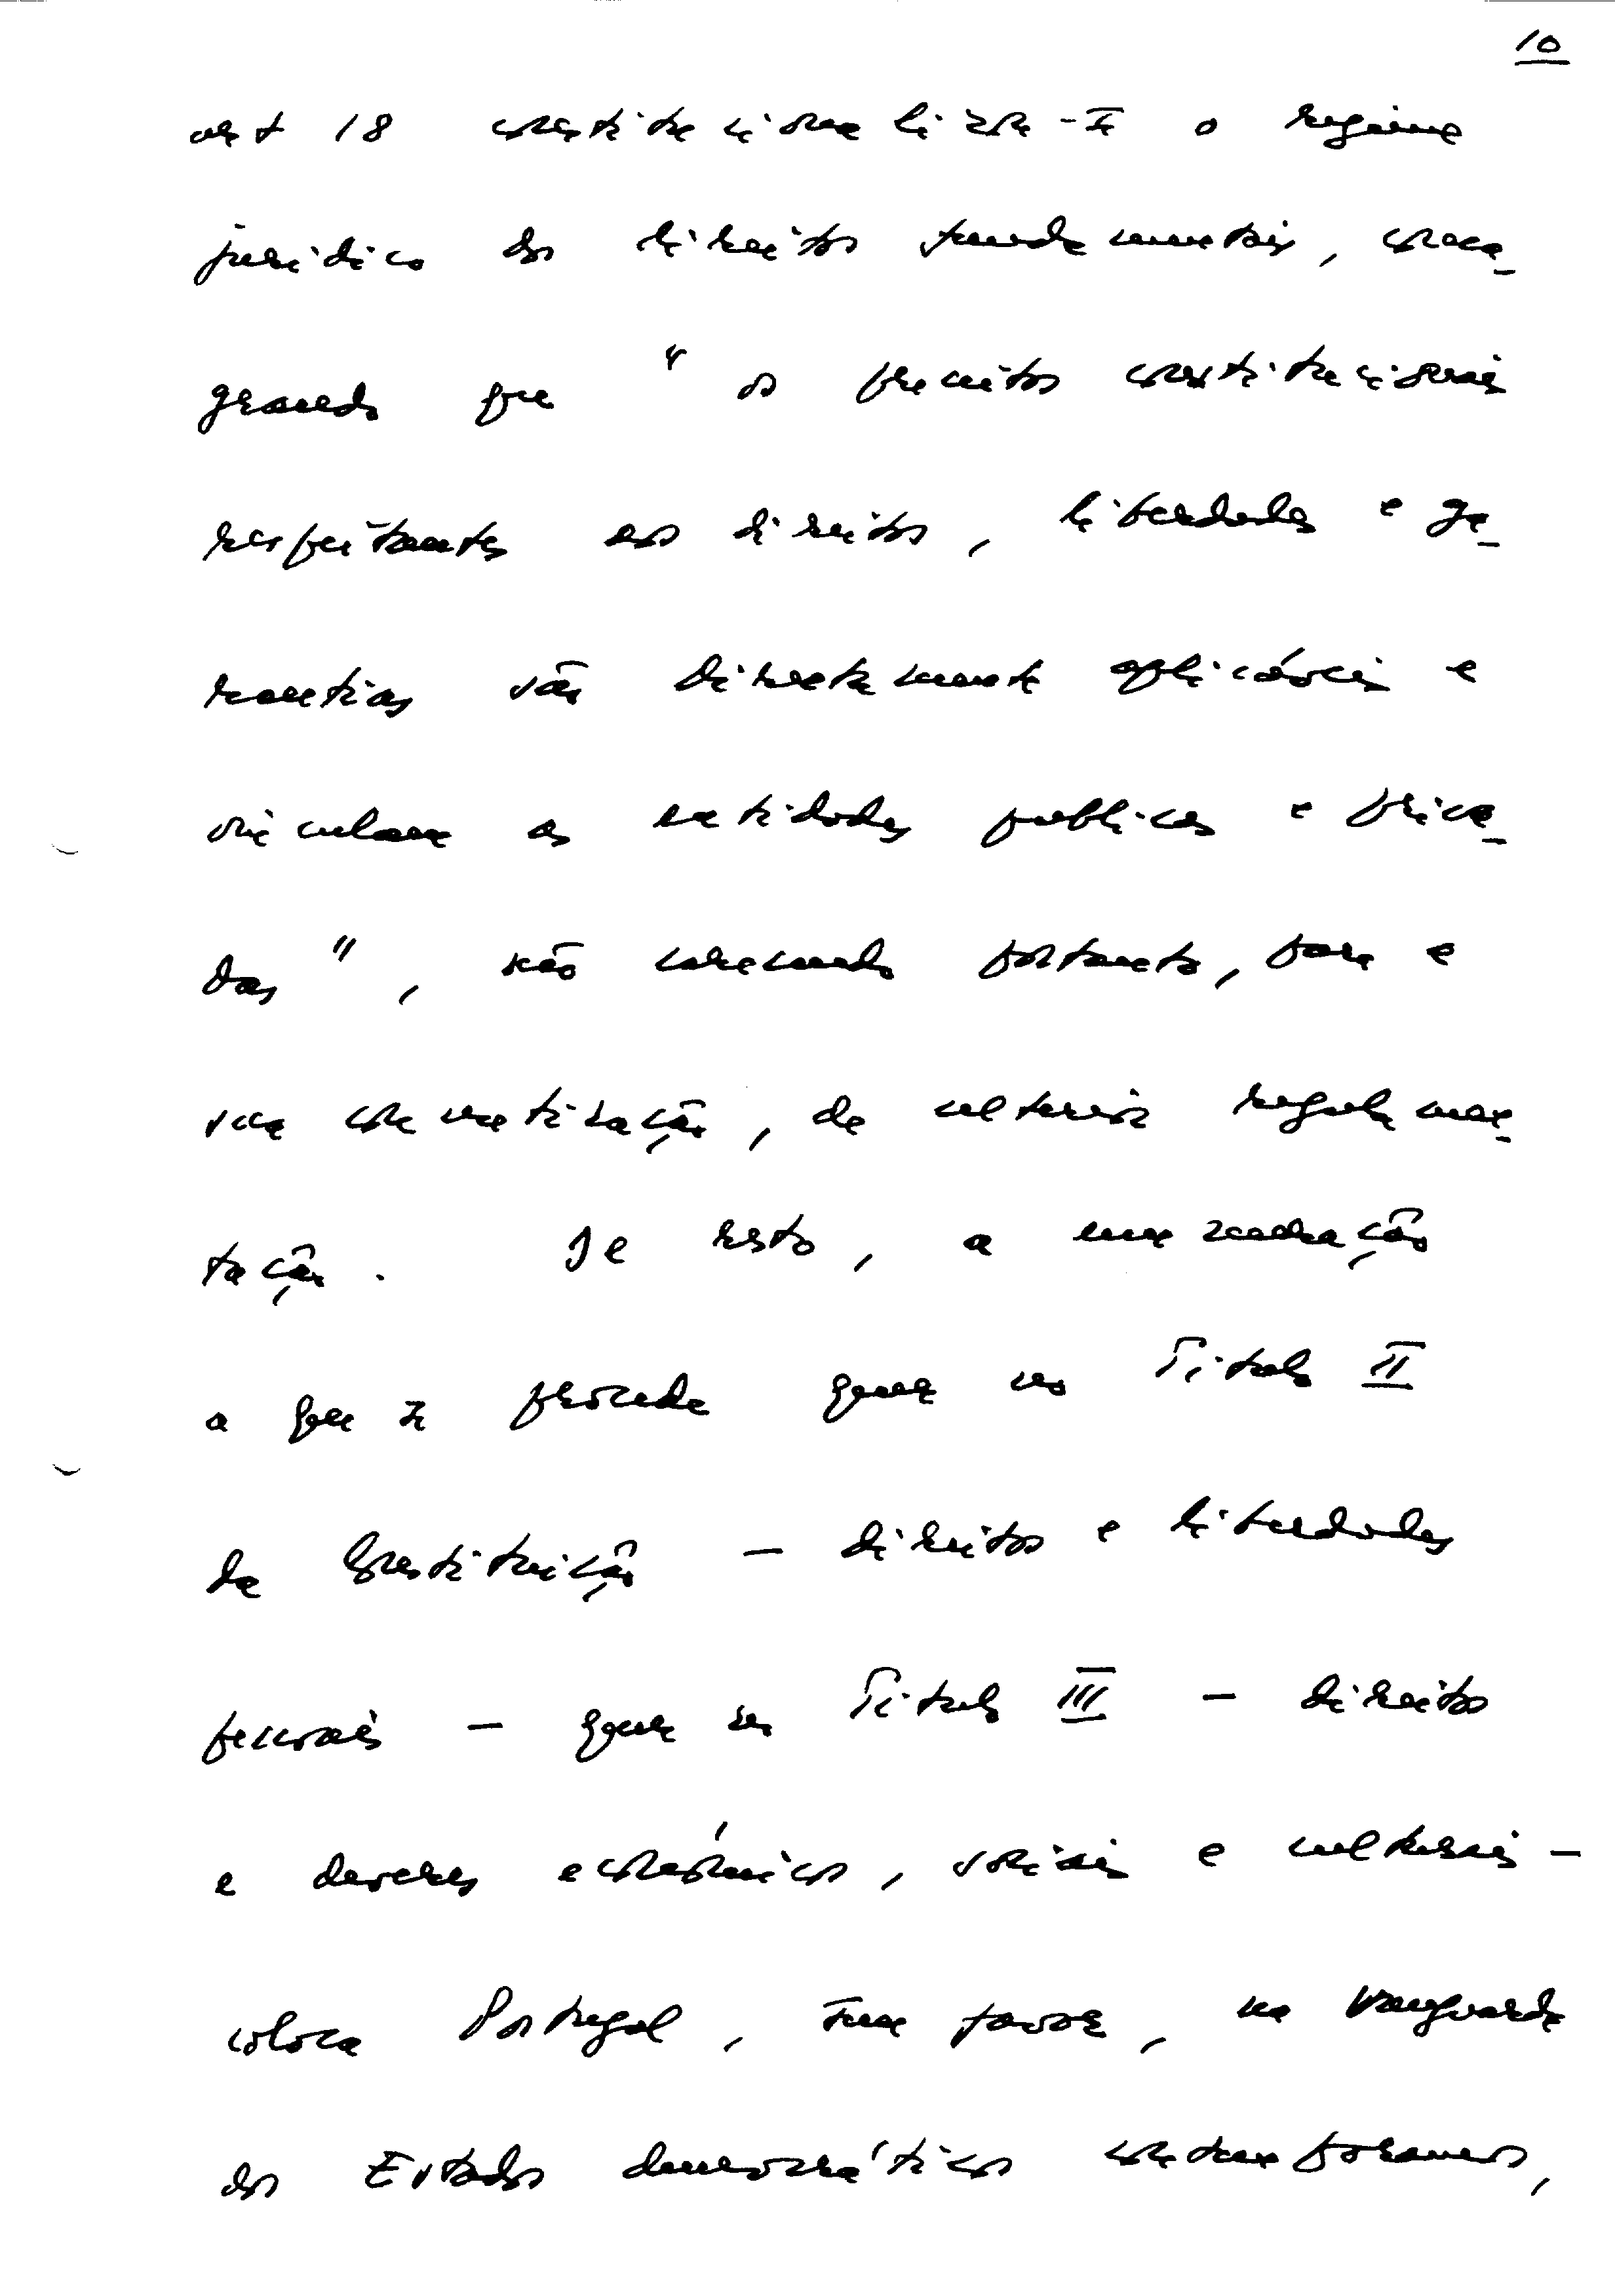 10
art 18 constitucionalizou-se o regime
jurídico dos direitos fundamentais, consa-
grando que " os preceitos constitucionais
respeitantes aos direitos, liberdades e ga-
rantias são directamente aplicáveis e
vinculam as entidades publicas e priva-
das ", não carecendo portanto, para a
sua concretização, de ulterior regulamen-
tação. De resto, a enumeração
a que se procede quer no Titulo II
da Constituição - direitos e liberdades
pessoais - quer no Titulo III - direitos
e deveres económicos, sociais e culturais -
coloca Portugal, sem favor, na vanguarda
dos Estados democráticos contemporaneos,